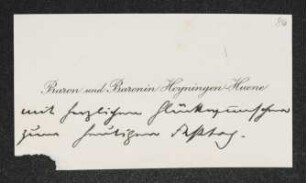 Baron und Baronin Hoyningen-Huene
mit herzlichen Glückwünschen
zum heutigen Festtag.